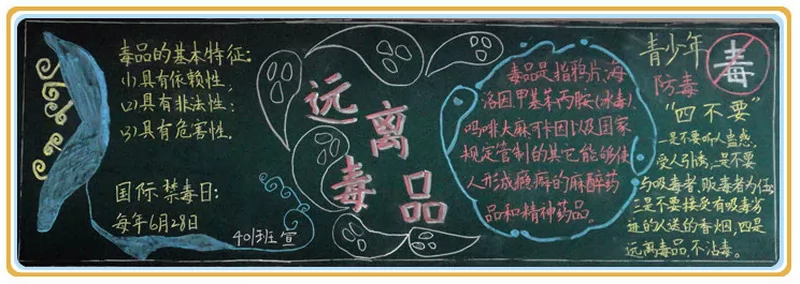 毒品的基本特征:
(1)具有依赖性,
(2)具有非法性;
(3)具有危害性.
国际禁毒日:
每年6月28日
401班宣
远离
毒品
毒品是指鸦片,海
洛因甲基苯丙胺(冰毒)
吗啡大麻可卡因以及国家
规定管制的其它能够使
人形成瘾癖的麻醉药
品和精神药品。
青少年
防毒
毒
"四不要"
一是不要听人蛊惑,
受人引诱,二是不要
与吸毒者,贩毒者为伍,
三是不要接受有吸毒劣
迹的人送的香烟,四是
远离毒品,不沾毒。